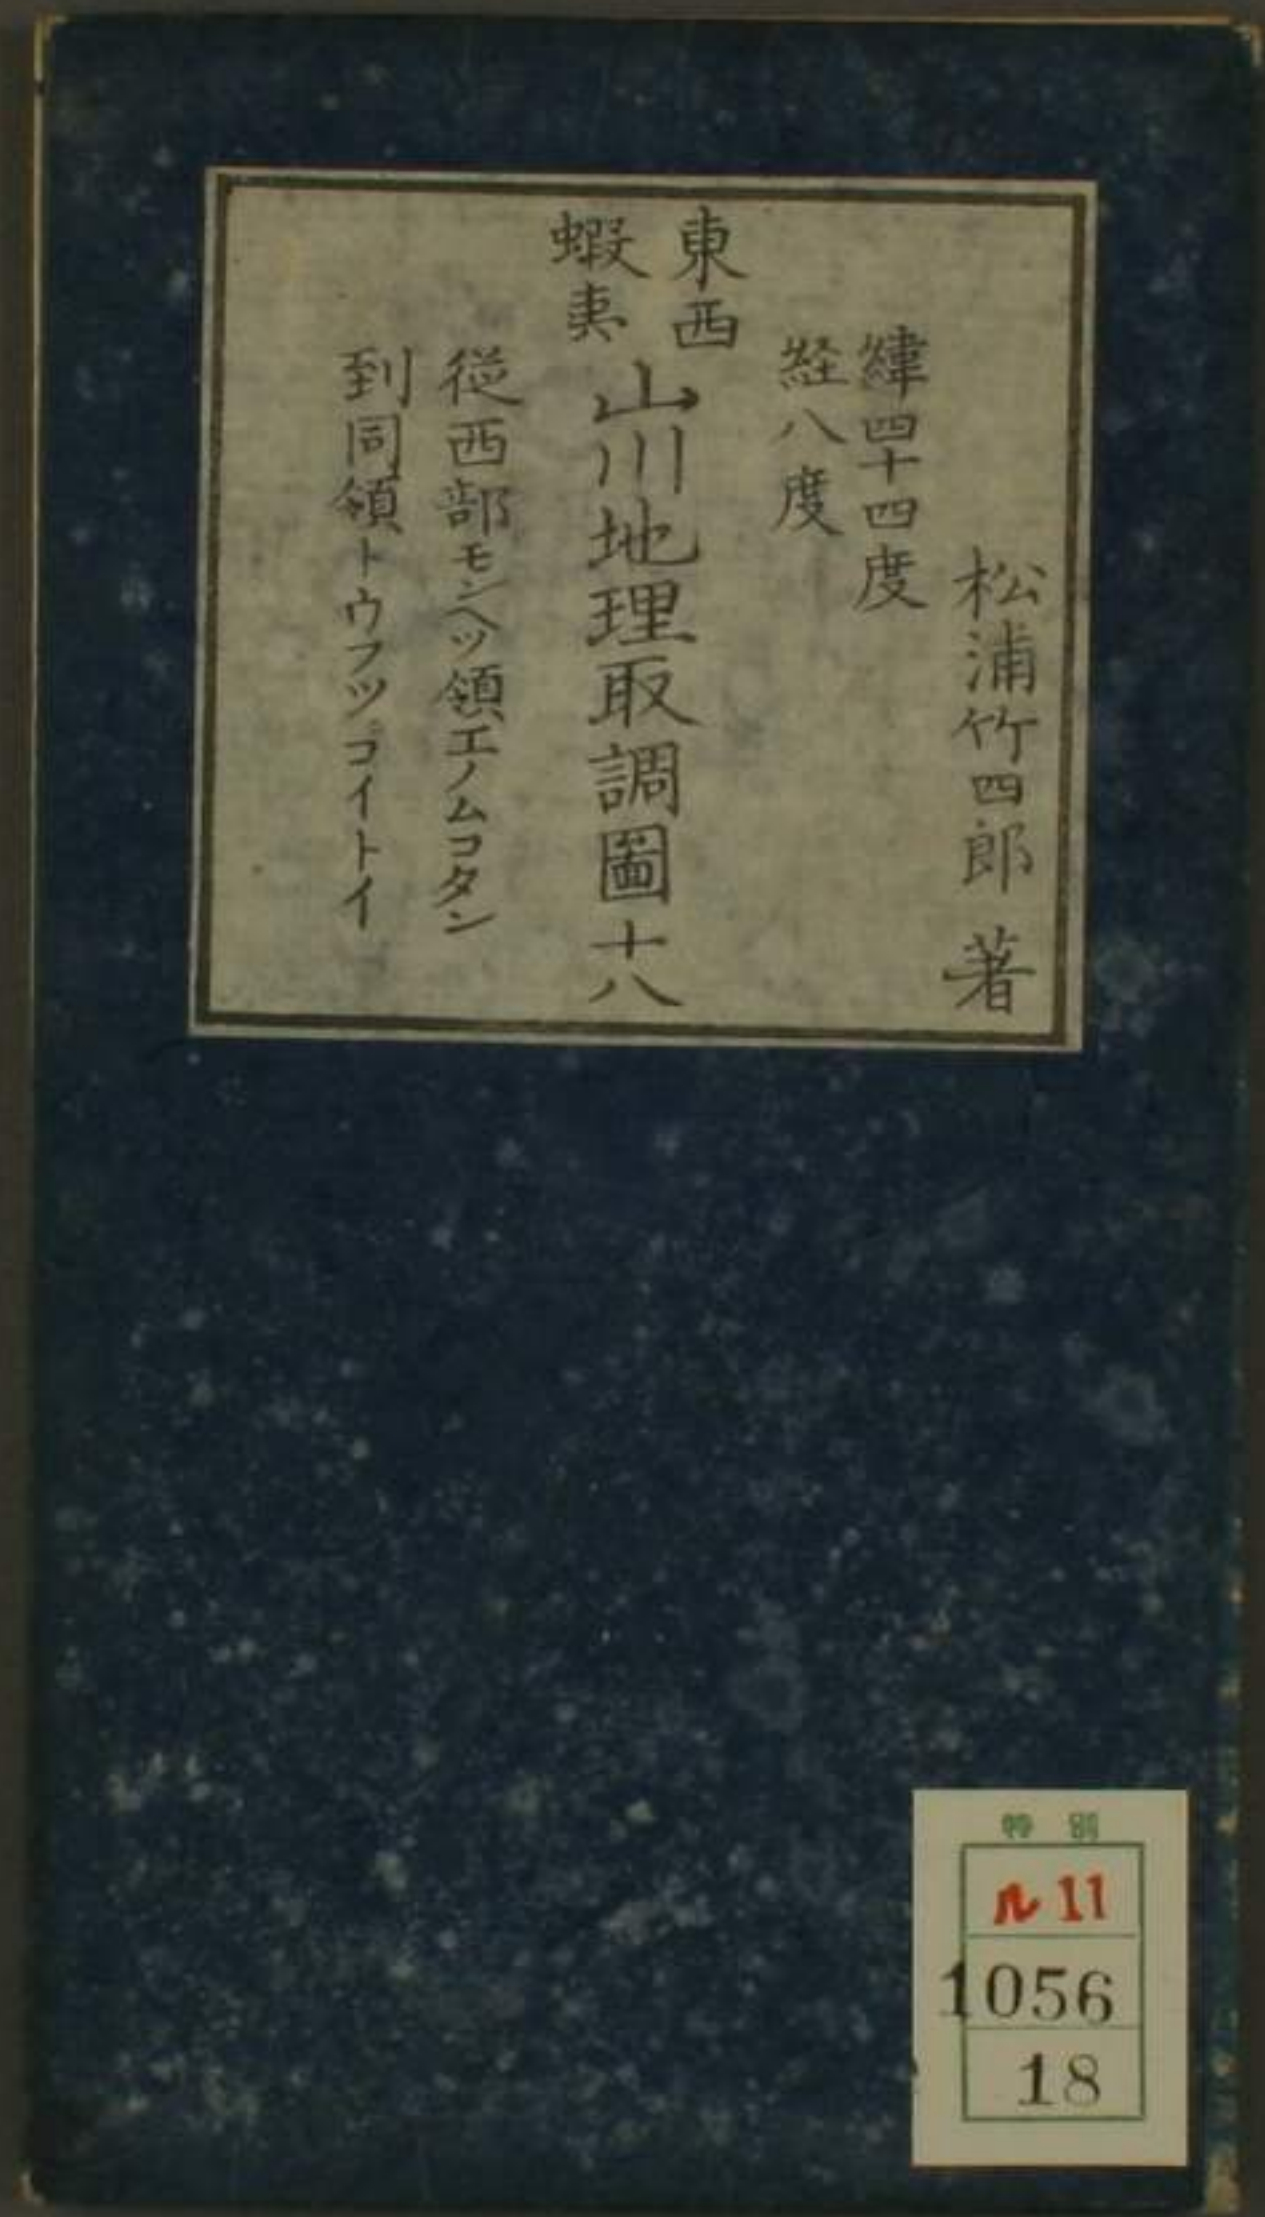 松浦竹四郎 著
緯四十四度
経八度
東西
蝦夷
山川地理取調圖十八
従西部モンヘツ領エノムコタン
到同領トウフツコイトイ
特別
ル11
1056
18